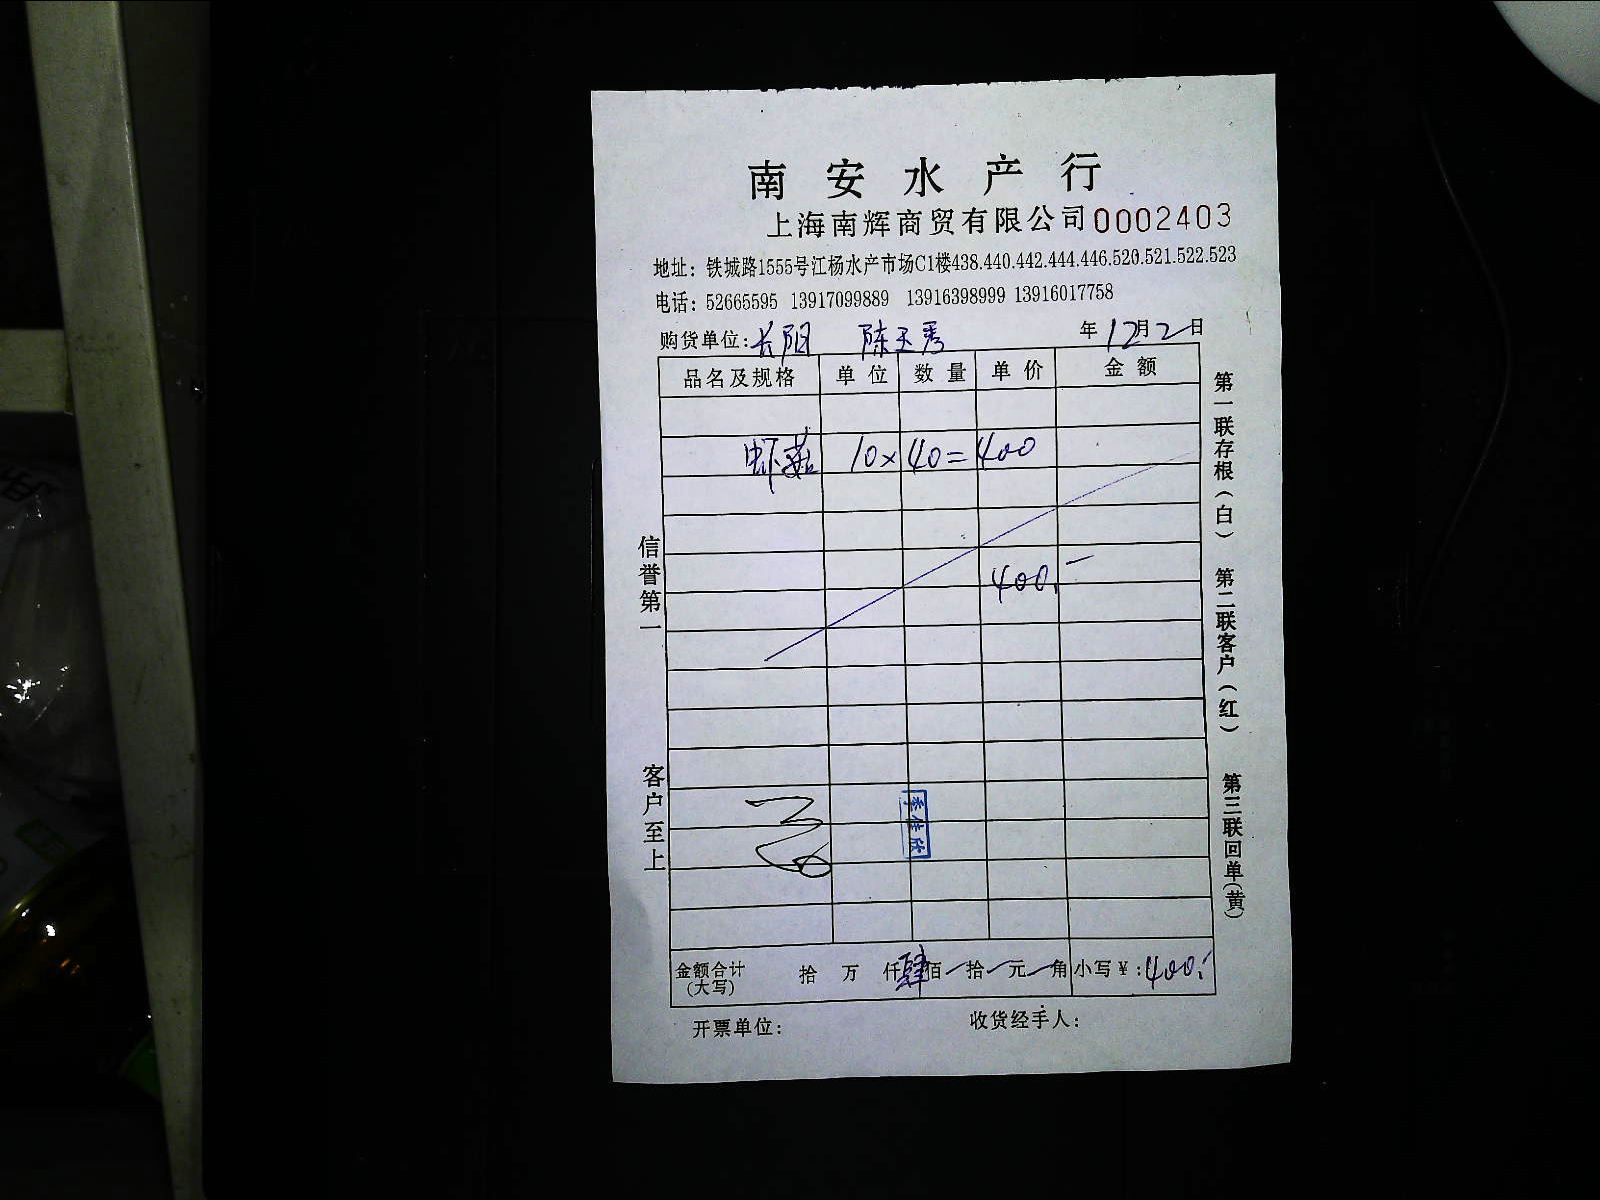 南安水产行
上海南辉商贸有限公司0002403
地址：铁城路1555号江杨水产市场C1楼438.440.442.444.446.520.521.522.523
电话：52665595 13917099889 13916398999 13916017758
购货单位：长阳 陈玉秀 年12月2日
品名及规格 单位 数量 单价 金额
虾菇 10×40=400
400.-
金额合计(大写) 拾 万 仟肆佰-拾-元-角 小写￥：400.-
开票单位： 收货经手人：
信誉第一
客户至上
第一联存根(白)
第二联客户(红)
第三联回单(黄)
季佳欣